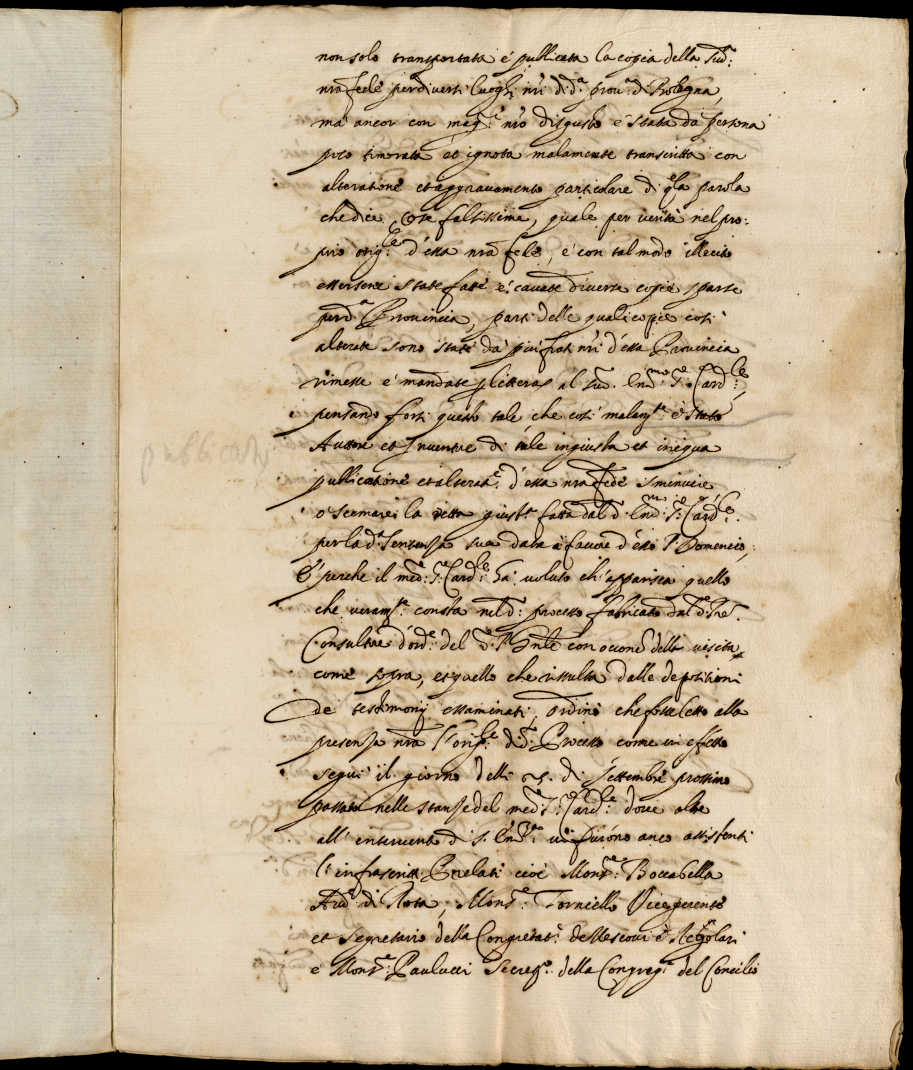 non solo transportata é publicata la copia della sud.ª
nrã fede per diversi luoghi nrĩ di d.ª prov.ª di Bologna
mà ancor con mag.r nrõ disgusto è stata da persona
poco timorata et ignota malamente transcritta con
alteratione et aggravamento particolare di q.lla parola
che dice, Cose falsissime, quale per verità nel pro:
prio orig.le d'essa nrã fede, è con tal modo illecito
essersene state fatte e cavate diverse copie sparse
per d.ª Provincia, parti delle quali copie così
alterate sono state da più frati nrĩ d'essa Provincia
rimesse e mandate p lettera al sud. Em.mo S.r Card.le:
pensando forsi questo tale, che così malam.te è stato
publicati
Auttore et Inventore di tale ingiusta et iniqua
publicatione et alterat.e d'essa nrã fede sminuire
o scemare la retta giust.ª fatta dal d. Em.mo S.r Card.le
per la d.ª Sentenza sua data à favore d'esso P. Domenico;
E perche il med.º S.r Card.le hà voluto ch'apparisca quello
che veram.te consta nel d.º processo fabricato dal d.º Pré
Consultore d'ord.e del d.º P. Gnĩle con occ.one della visita,
come sopra, et quello che risulta dalle depositioni
de testimonij essaminati, ordinò che fosse letto alla
presenza nrã l'orig.le d.º Processo come in effetto
seguì il giorno delli 25. di Settembre prossimo
passato nelle stanze del med.º S.r Card.le dove oltre
all'intervento di S. Em.za vi furono anco assistenti
l'infrascritti Prelati cioè Mons.r Boccabella
Aud.re di Rota, Mons.r Torniello Vicegerente
et Segretario della Congregat.e de Vescovi e Regolari
e Mons.r Paulucci Secret.º della Congreg.e del Concilio